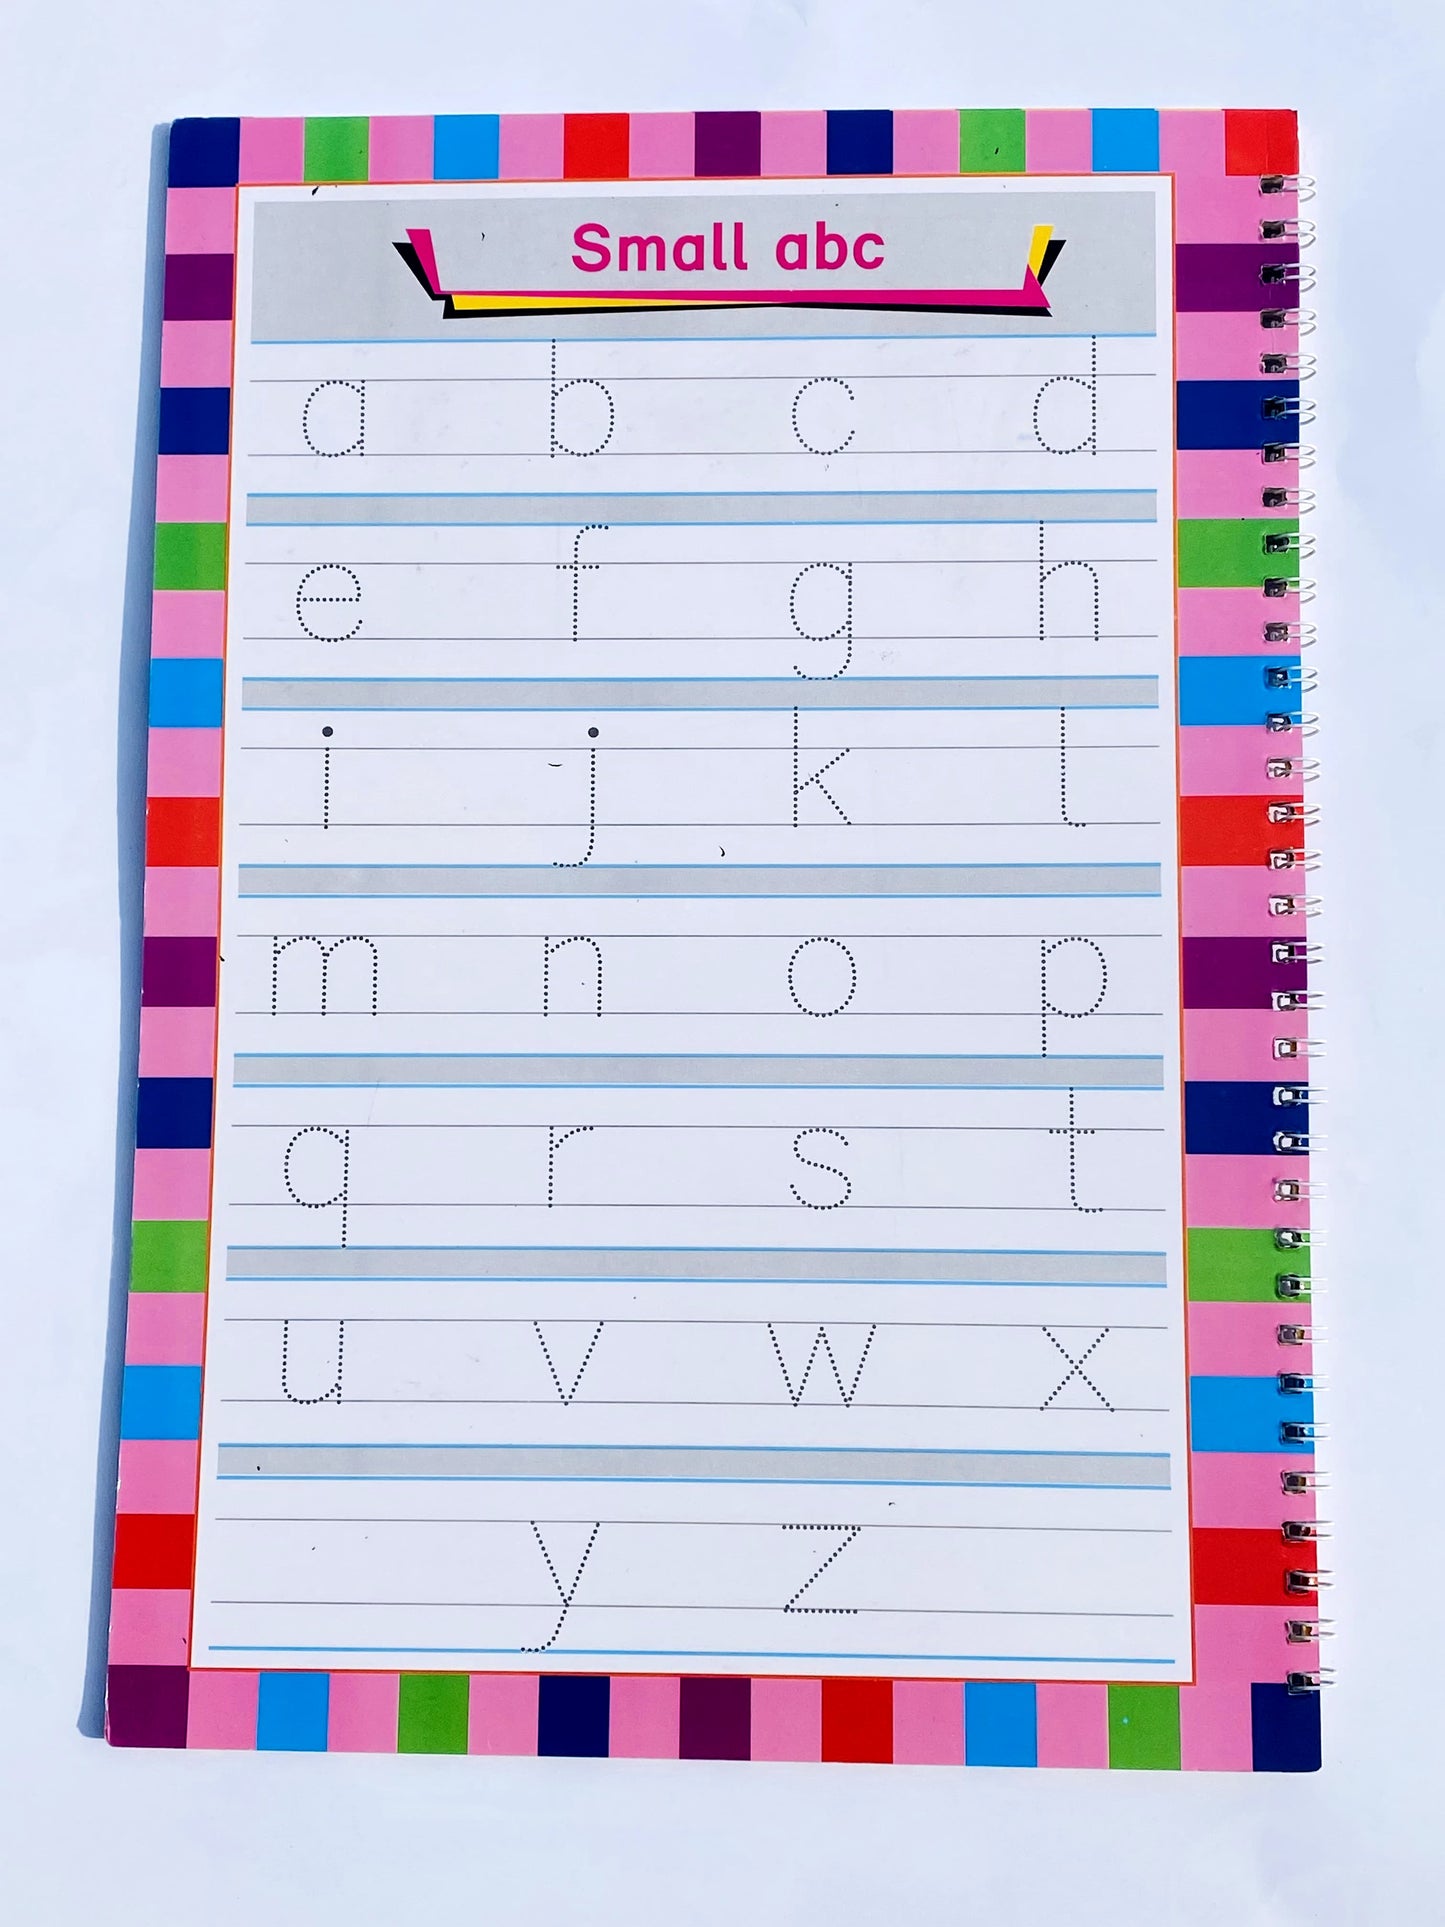 Small abc
a b c d
e f g h
i j k l
m n o p
q r s t
u v w x
y z